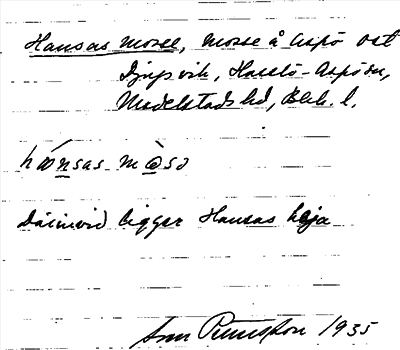 Hansas mosse, mosse å Aspö ost
Djupvik, Hasslö-Aspö sn,
Medelstads hd, Blek. l.
hánsas m
Därinvid ligger Hansas haja
1935